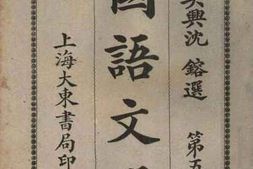 吳興沈 鎔選 第五
國語文
上海大東書局印